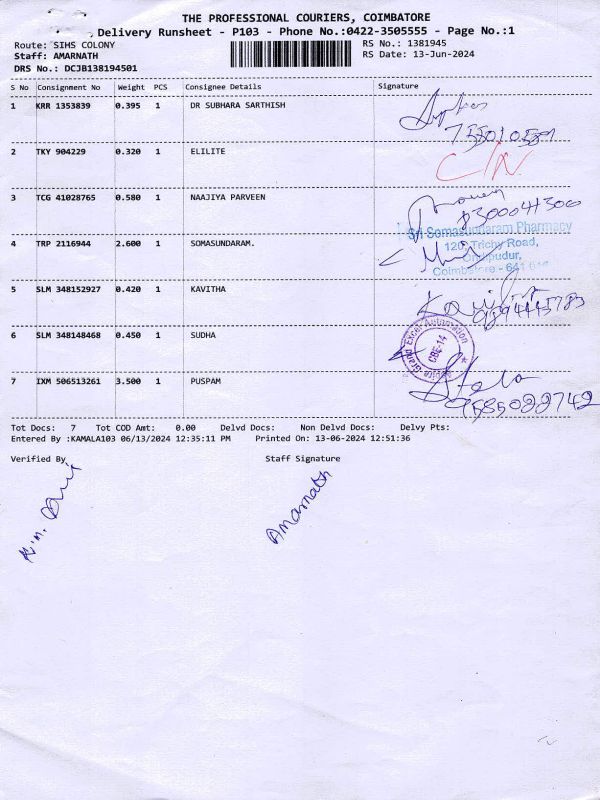 THE PROFESSIONAL COURIERS, COIMBATORE
Delivery Runsheet - P103 - Phone No.:0422-3505555 - Page No.:1
Route: SIHS COLONY RS No.: 1381945
Staff: AMARNATH RS Date: 13-Jun-2024
DRS No.: DCJB138194501
S No Consignment No Weight PCS Consignee Details Signature
1 KRR 1353839 0.395 1 DR SUBHARA SARTHISH
2 TKY 904229 0.320 1 ELILITE
C/N
3 TCG 41028765 0.580 1 NAAJIYA PARVEEN
8300041300
Sri Somasundaram Pharmacy
4 TRP 2116944 2.600 1 SOMASUNDARAM.
120, Trichy Road,
Ondipudur,
Coimbatore - 641
5 SLM 348152927 0.420 1 KAVITHA
6 SLM 348148468 0.450 1 SUDHA
CBE-14
7 IXM 506513261 3.500 1 PUSPAM
9585022742
Tot Docs: 7 Tot COD Amt: 0.00 Delvd Docs: Non Delvd Docs: Delvy Pts:
Entered By :KAMALA103 06/13/2024 12:35:11 PM Printed On: 13-06-2024 12:51:36
Verified By Staff Signature
Amarnath